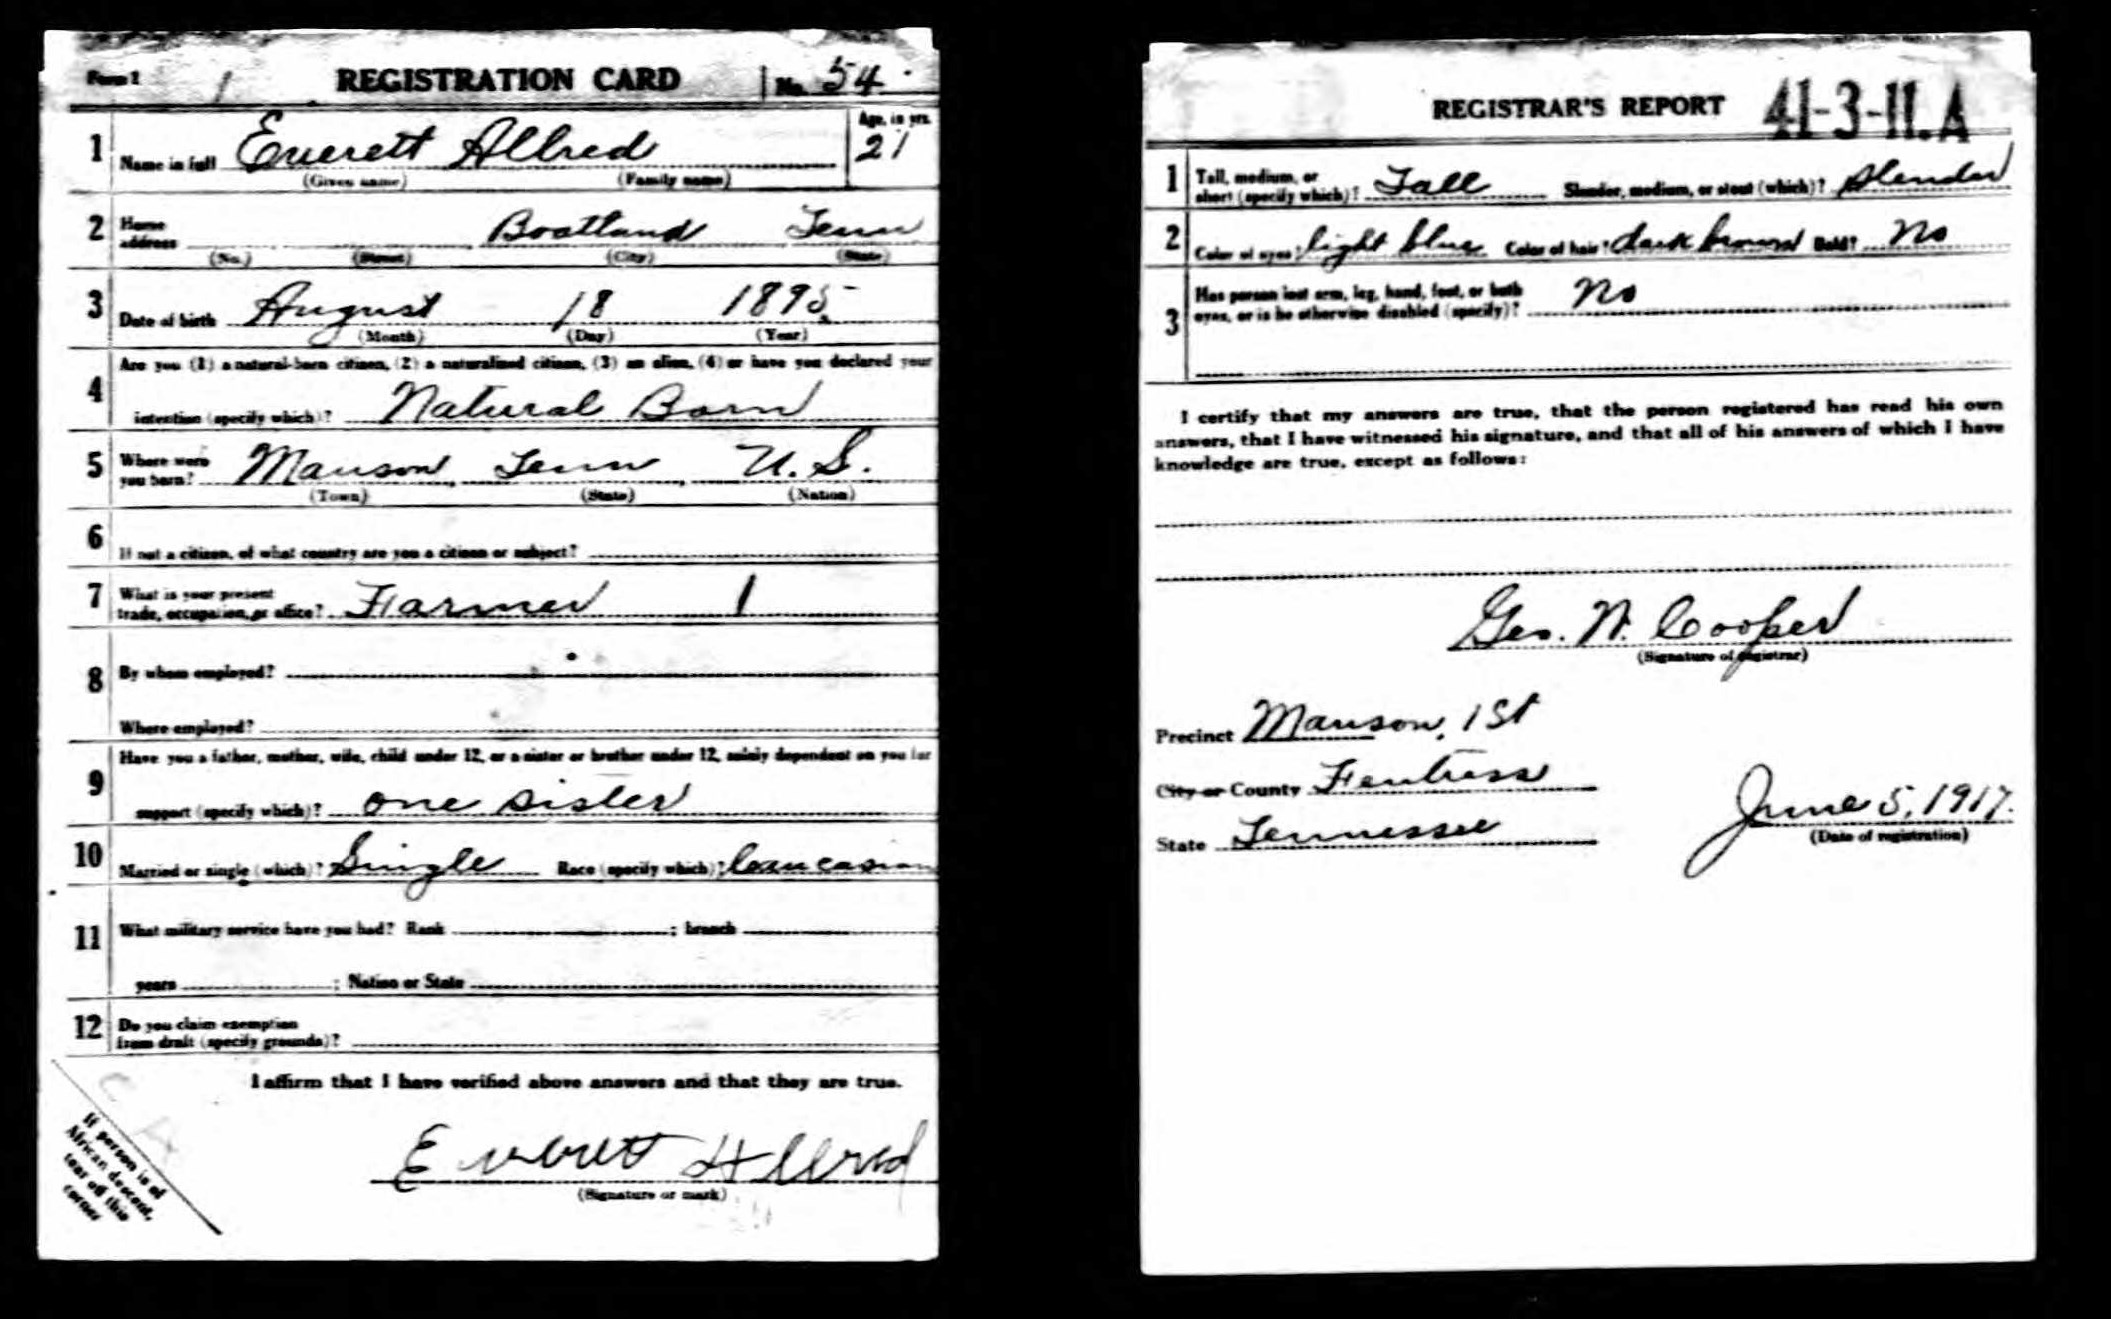 Form 1 1 REGISTRATION CARD No. 54
1 Name in full Everett Allred Age, in yrs. 21
(Given name) (Family name)
2 Home address Boatland Tenn
(No.) (Street) (City) (State)
3 Date of birth August 18 1895
(Month) (Day) (Year)
4 Are you (1) a natural-born citizen, (2) a naturalized citizen, (3) an alien, (4) or have you declared your
intention (specify which)? Natural Born
5 Where were you born? Manson Tenn U. S.
(Town) (State) (Nation)
6 If not a citizen, of what country are you a citizen or subject?
7 What is your present
trade, occupation, or office? Farmer 1
8 By whom employed?
Where employed?
9 Have you a father, mother, wife, child under 12, or a sister or brother under 12, solely dependent on you for
support (specify which)? one sister
10 Married or single (which)? Single Race (specify which)? Caucasian
11 What military service have you had? Rank ; branch
years ; Nation or State
12 Do you claim exemption
from draft (specify grounds)?
I affirm that I have verified above answers and that they are true.
Everett Allred
(Signature or mark)
If person is of
African descent,
tear off this
corner
REGISTRAR'S REPORT 41-3-11. A
1 Tall, medium, or
short (specify which)? Tall Slender, medium, or stout (which)? Slender
2 Color of eyes? light blue Color of hair? dark brown Bald? No
3 Has person lost arm, leg, hand, foot, or both
eyes, or is he otherwise disabled (specify)? No
I certify that my answers are true, that the person registered has read his own
answers, that I have witnessed his signature, and that all of his answers of which I have
knowledge are true, except as follows:
Geo. N. Cooper
(Signature of registrar)
Precinct Manson, 1st
City or County Fentress
State Tennessee
June 5, 1917.
(Date of registration)